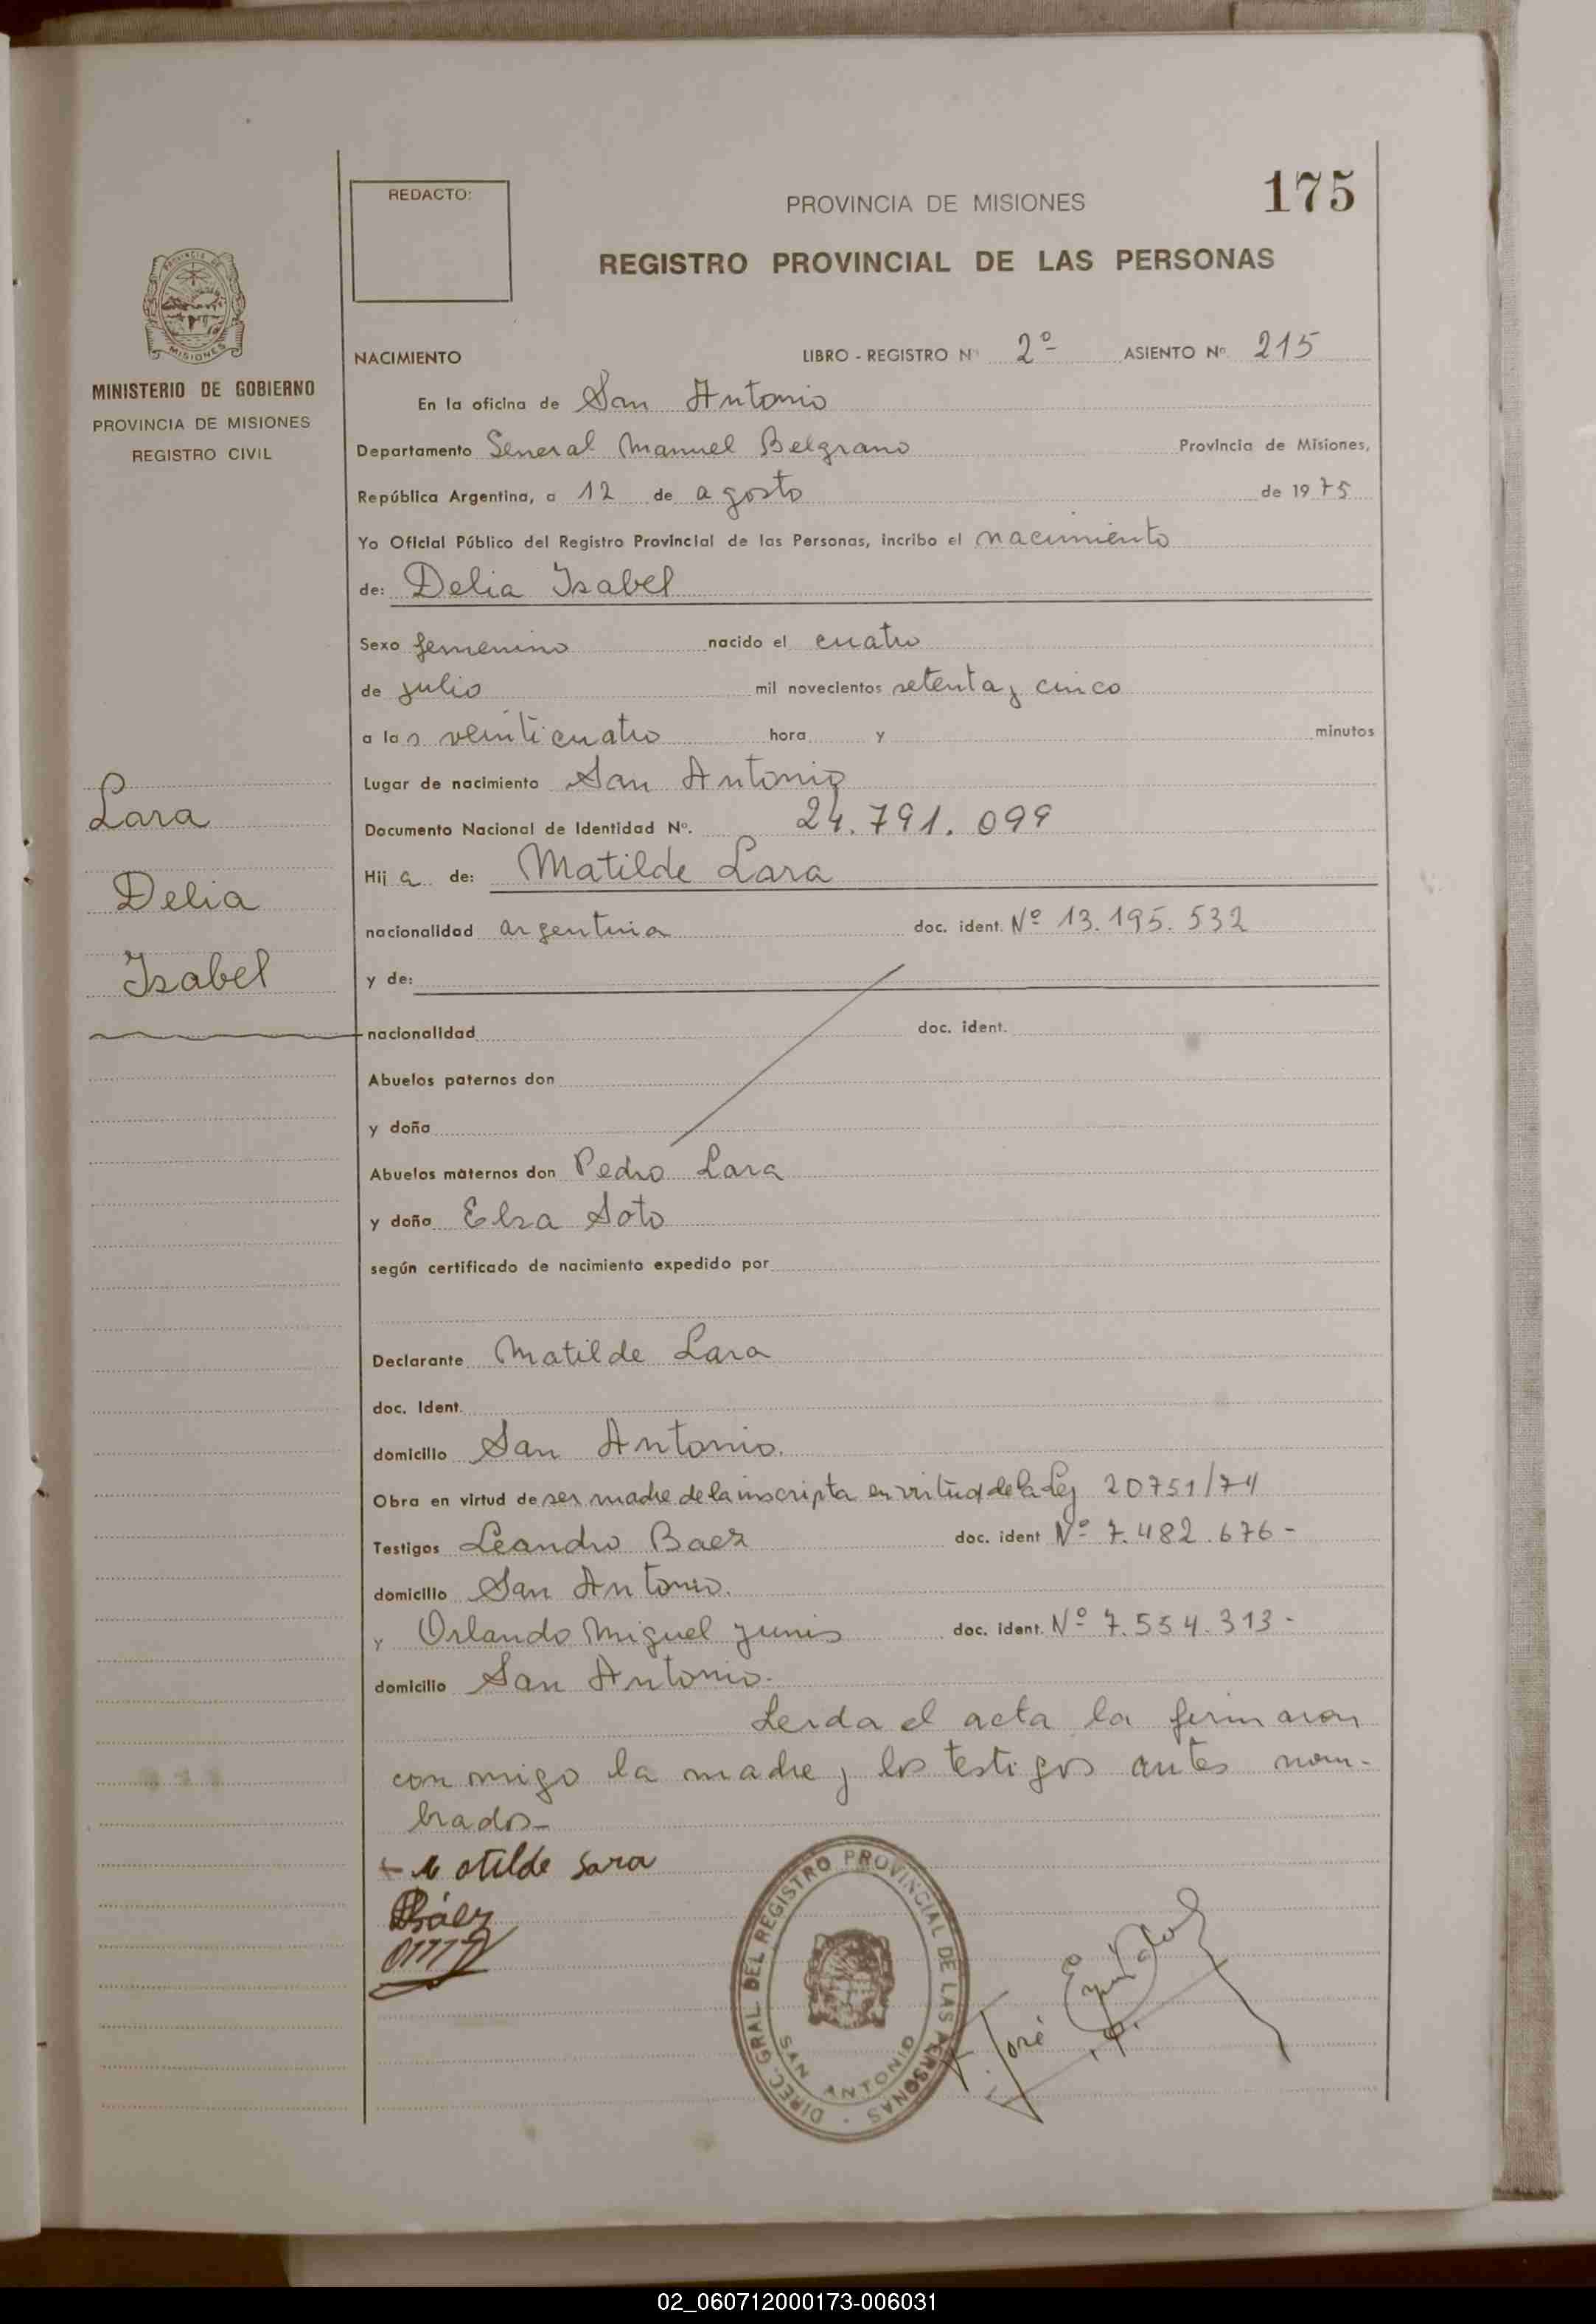 REDACTO:
PROVINCIA DE MISIONES
175
REGISTRO PROVINCIAL DE LAS PERSONAS
PROVINCIA DE
MISIONES
MINISTERIO DE GOBIERNO
PROVINCIA DE MISIONES
REGISTRO CIVIL
NACIMIENTO LIBRO - REGISTRO Nº 2º ASIENTO Nº 215
En la oficina de San Antonio
Departamento General Manuel Belgrano Provincia de Misiones,
República Argentina, a 12 de agosto de 1975
Yo Oficial Público del Registro Provincial de las Personas, incribo el nacimiento
de: Delia Isabel
Sexo femenino nacido el cuatro
de julio mil novecientos setenta y cinco
a las veinticuatro hora y minutos
Lugar de nacimiento San Antonio
Documento Nacional de Identidad Nº. 24.791.099
Hija de: Matilde Lara
nacionalidad argentina doc. ident. Nº 13.195.532
y de:
nacionalidad doc. ident.
Abuelos paternos don
y doña
Abuelos maternos don Pedro Lara
y doña Elsa Soto
según certificado de nacimiento expedido por
Declarante Matilde Lara
doc. Ident.
domicilio San Antonio.
Obra en virtud de ser madre de la inscripta en virtud de la Ley 20751/74
Testigos Leandro Baez doc. ident Nº 7.482.676-
domicilio San Antonio.
y Orlando Miguel Junis doc. ident. Nº 7.554.313-
domicilio San Antonio.
Leida el acta la firmaron
conmigo la madre y los testigos antes nom-
brados-
Lara
Delia
Isabel
Matilde Lara
Báez
DIREC. GRAL. DEL REGISTRO PROVINCIAL DE LAS PERSONAS
SAN ANTONIO
José
02_060712000173-006031